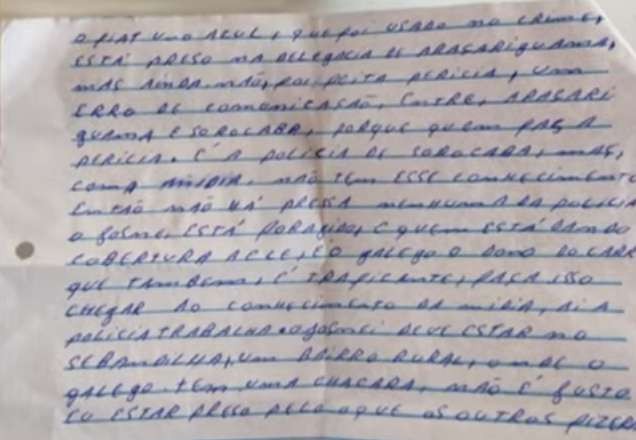 O FIAT UNO AZUL, QUE FOI USADO NO CRIME,
ESTÁ PRESO NA DELEGACIA DE ARAÇARIGUAMA,
MAS AINDA, NÃO, FOI FEITA PERICIA, UM
ERRO DE COMUNICAÇÃO, ENTRE, ARAÇARI
GUAMA E SOROCABA, PORQUE QUEM FAZ A
PERICIA. É A POLICIA DE SOROCABA, MAS,
COMO A MIDIA, NÃO TEM ESSE CONHECIMENTO
ENTÃO NÃO HÁ PRESSA NENHUMA DA POLICIA
O ESTÁ FORAGIDO, E QUEM ESTÁ DANDO
COBERTURA A ELE, É O GALEGO O DONO DO CARR
QUE TAMBEM, É TRAFICANTE, FAÇA ISSO
CHEGAR AO CONHECIMENTO DA MIDIA, AI A
POLICIA TRABALHA. O DEVE ESTAR NO
SEBANDILHA, UM BAIRRO RURAL, ONDE O
GALEGO TEM UMA CHACARA, NÃO É JUSTO
EU ESTAR PRESO PELO O QUE OS OUTROS FIZER